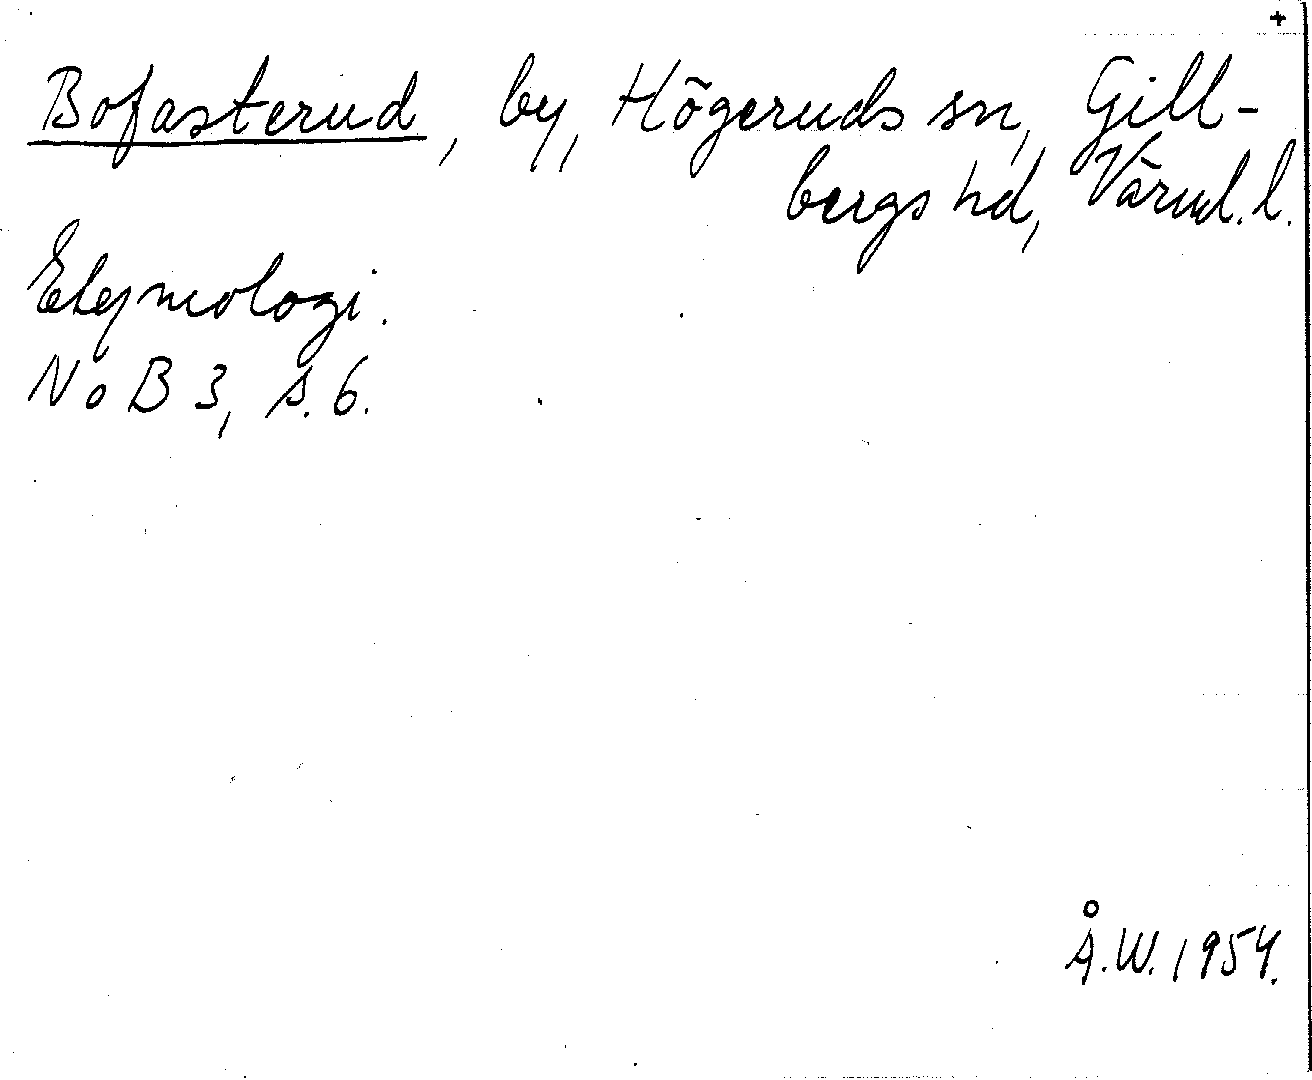 +
Bofasterud, by, Högeruds sn, Gill-
bergs hd, Värml. l.
Etymologi.
NoB 3, s. 6.
Å.W. 1954.